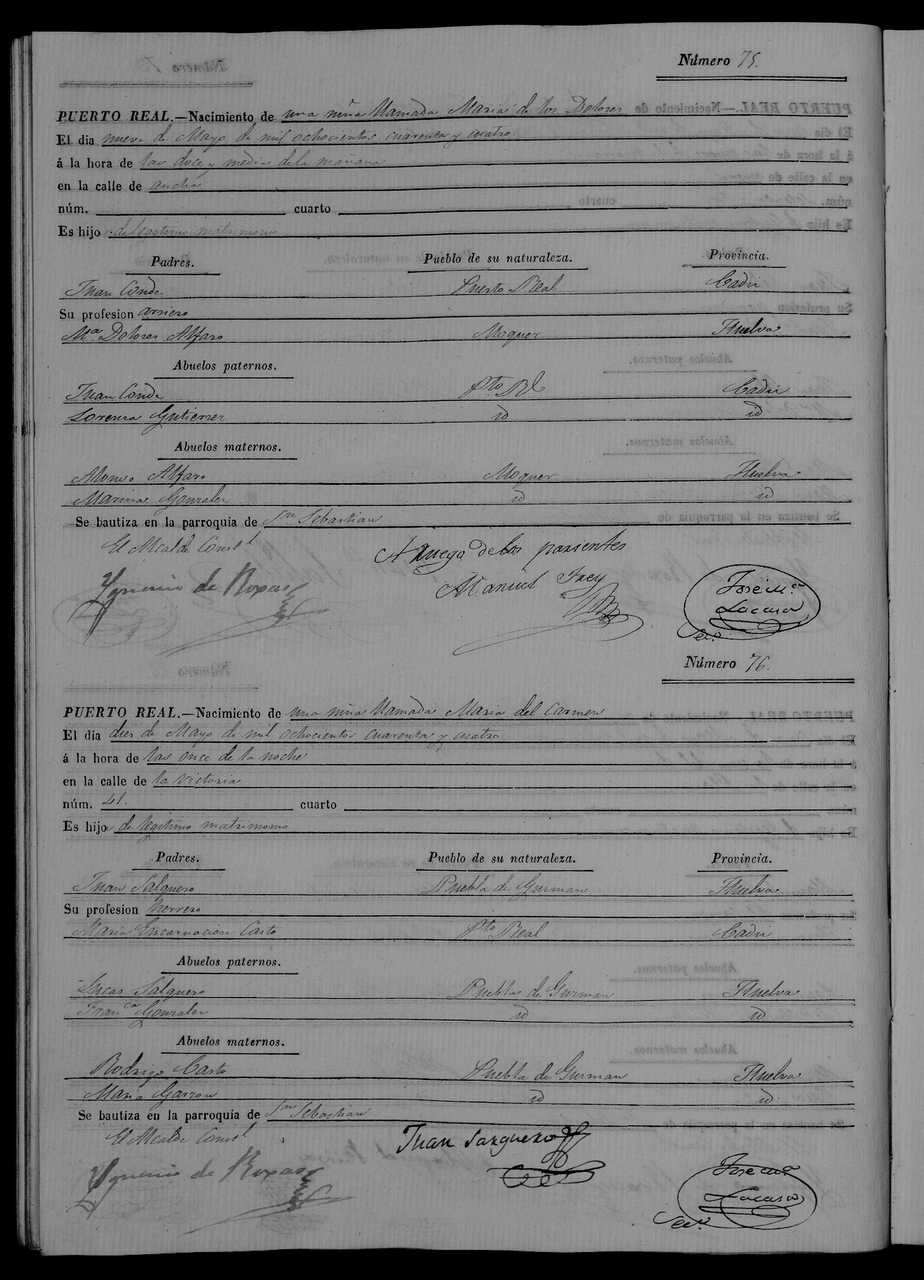 Número 75.
PUERTO REAL.—Nacimiento de una niña llamada Maria de los Dolores
El dia nueve de Mayo de mil ochocientos cuarenta y cuatro
á la hora de las doce y media de la mañana
en la calle de ancha
núm. cuarto
Es hijo de lexitimo matrimonio
Padres. Pueblo de su naturaleza. Provincia.
Juan Conde Puerto Real Cadiz
Su profesion arriero
Mª Dolores Alfaro Moguer Huelva
Abuelos paternos.
Juan Conde Pto Rl Cadiz
Lorenza Gutierrez id id
Abuelos maternos.
Alonso Alfaro Moguer Huelva
Marina Gonzalez id id
Se bautiza en la parroquia de Sn Sebastian
El Alcalde Constl
A ruego de los parientes
Ygnacio de Roxas Manuel José Mª
Lacasa
Seco.
Número 76.
PUERTO REAL.—Nacimiento de una niña llamada Maria del Carmen
El día diez de Mayo de mil ochocientos cuarenta y cuatro
á la hora de las once de la noche
en la calle de la victoria
núm. 41. cuarto
Es hijo de legitimo matrimonio
Padres. Pueblo de su naturaleza. Provincia.
Juan Salguero Puebla de Guzman Huelva
Su profesion herrero
Maria Encarnacion Casto Pto Real Cadiz
Abuelos paternos.
Lucas Salguero Puebla de Guzman Huelva
Franca Gonzalez id id
Abuelos maternos.
Rodrigo Casto Puebla de Guzman Huelva
Maria Garzon id id
Se bautiza en la parroquia de Sn Sebastian
El Alcalde Constl Juan Sarguero
Ygnacio de Roxas José Mª
Lacasa
Seco.